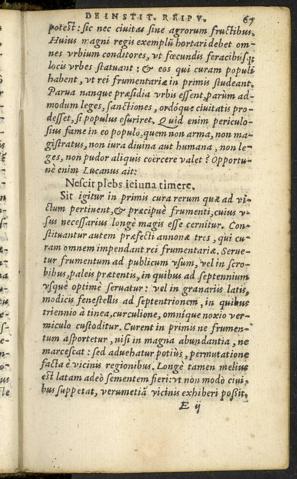 DE INSTIT. REIPV. 67
potest: sic nec ciuitas sine agrorum fructibus.
Huius magni regis exempli hortari debet om-
nes vrbium conditores, vt fœcundis feracibusq;
locis vrbes statuant: & eos qui curam populi
habent, vt rei frumentariæ in primis studeant.
Parua nanque præsidia vrbis essent, parùm ad-
modum leges, sanctiones, ordóque ciuitatis pro-
desset, si populus esuriret. Quid enim periculo-
sius fame in eo populo, quem non arma, non ma-
gistratus, non iura diuina aut humana, non le-
ges, non pudor aliquis coërcere valet? Opportu-
nè enim Lucanus ait:
Nescit plebs ieiuna timere.
Sit igitur in primis cura rerum quæ ad vi-
ctum pertinent, & præcipuè frumenti, cuius v-
sus necessarius longè magis esse cernitur. Con-
stituantur autem præfecti annonæ tres, qui cu-
ram omnem impendant rei frumentariæ. Serue-
tur frumentum ad publicum vsum, vel in scro-
bibus, paleis prætentis, in quibus ad septennium
vsque optimè seruatur: vel in granariis latis,
modicis fenestellis ad septentrionem, in quibus
triennio à tinea, curculione, omnique noxio ver-
miculo custoditur. Curent in primis ne frumen-
tum asportetur, nisi in magna abundantia, ne
marcescat: sed aduehatur potiùs, permutatione
facta è vicinis regionibus. Longè tamen melius
est latam adeò sementem fieri: vt non modò ciui-
bus suppetat, verumetiā vicinis exhiberi possit,
E ij